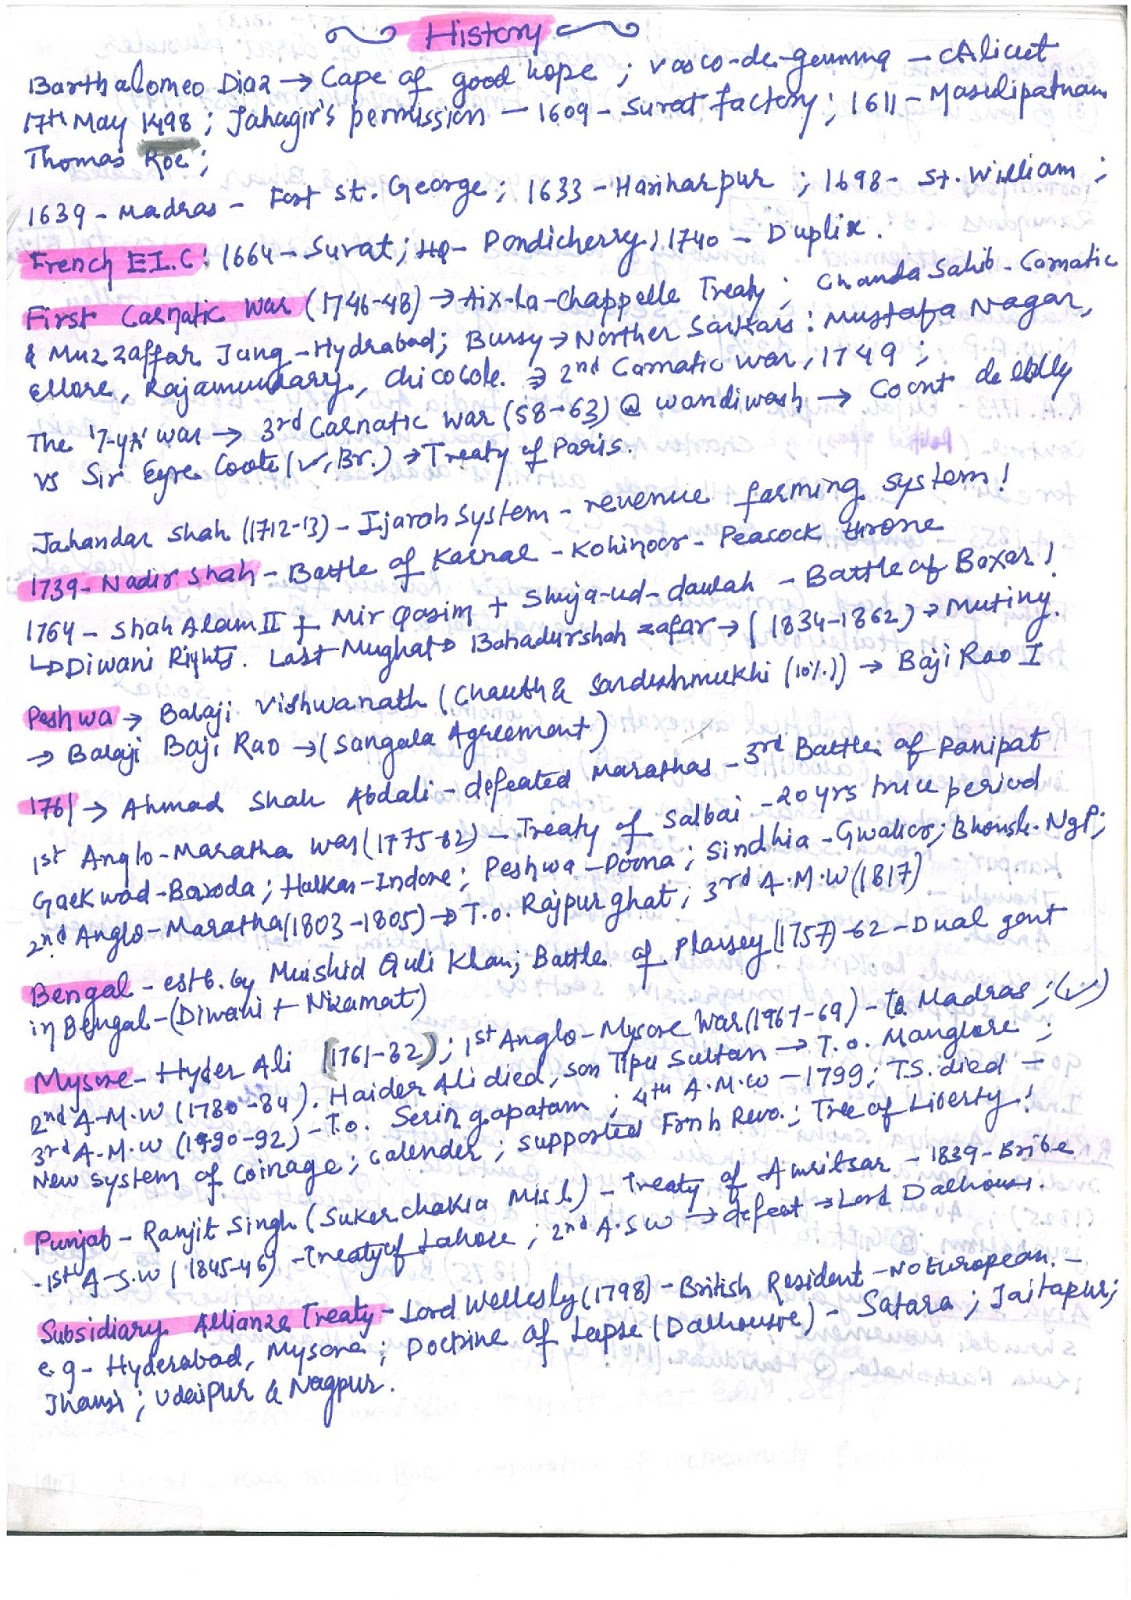 History
Barthalomeo Diaz → Cape of good hope ; Vasco-de-gamma - cAlicut
17th May 1498 ; Jahagir's permission - 1609 - Surat factory ; 1611 - Masulipatnam
Thomas Roe ;
1639 - Madras - Fort St. George ; 1633 - Hariharpur ; 1698 - St. William ;
French E.I.C : 1664 - Surat ; HQ - Pondicherry ; 1740 - Duplix .
First Carnatic War (1746-48) → Aix-La-Chappelle Treaty ; Chanda Sahib - Carnatic
& Muzzaffar Jung - Hydrabad ; Bussy → Norther Sarkars : Mustafa Nagar,
Ellore, Rajamundary, Chicocole. → 2nd Carnatic war, 1749 ;
The '7-yr' war → 3rd Carnatic War (58-63) @ Wandiwash → Count de Lally
vs Sir Eyre Coote (✓, Br.) → Treaty of Paris.
Jahandar Shah (1712-13) - Ijarah System - revenue farming system !
1739 - Nadir Shah - Battle of Karnal - Kohinoor - Peacock throne
1764 - Shah Alam II + Mir Qasim + Shuja-ud-daulah - Battle of Boxar !
↳ Diwani Rights. Last Mughal → Bahadurshah zafar → (1834-1862) → Mutiny.
Peshwa → Balaji Vishwanath (Chauth & Sardeshmukhi (10%)) → Baji Rao I
→ Balaji Baji Rao → (Sangola Agreement)
1761 → Ahmad Shah Abdali - defeated Marathas - 3rd Battle of Panipat
1st Anglo-Maratha war (1775-82) - Treaty of Salbai - 20 yrs truce period
Gaekwad - Baroda ; Holkar - Indore ; Peshwa - Poona ; Sindhia - Gwalior ; Bhonsle - Ngp ;
2nd Anglo-Maratha (1803-1805) → T.o. Rajpurghat ; 3rd A.M.W (1817)
Bengal - estb. by Murshid Quli Khan ; Battle of Plassey (1757) - 62 - Dual govt
in Bengal - (Diwani + Nizamat)
Mysore - Hyder Ali (1761-82) ; 1st Anglo-Mysore War (1967-69) - To Madras ; (✓)
2nd A-M.W (1780-84). Haider Ali died, son Tipu Sultan → T.o. Manglore ;
3rd A.M.W (1990-92) - T.o. Seringapatam ; 4th A.M.W - 1799 ; T.S. died =
New system of Coinage ; Calender ; supported Frnh Revo. ; Tree of Liberty !
Punjab - Ranjit Singh (Sukerchakia Misl) - Treaty of Amritsar - 1839 - Bribe
- 1st A-S.W (1845-46) - Treaty of Lahore ; 2nd A.S.W → defeat → Lord Dalhousi.
Subsidiary Allianze Treaty - Lord Wellesly (1798) - British Resident - No European. -
e.g - Hyderabad, Mysore ; Doctrine of Lapse (Dalhousie) - Satara ; Jaitapur ;
Jhansi ; Udaipur & Nagpur.